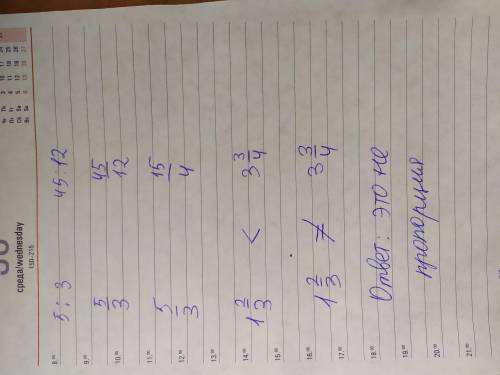 среда/wednesday
150-215
8.⁰⁰ 5 : 3 45 : 12
9.⁰⁰
10.⁰⁰ 5/3 45/12
11.⁰⁰
12.⁰⁰ 5/3 15/4
13.⁰⁰
14.⁰⁰ 1 2/3 < 3 3/4
15.⁰⁰
16.⁰⁰ 1 2/3 ≠ 3 3/4
17.⁰⁰
18.⁰⁰ Ответ: это не
19.⁰⁰ пропорция
20.⁰⁰
21.⁰⁰